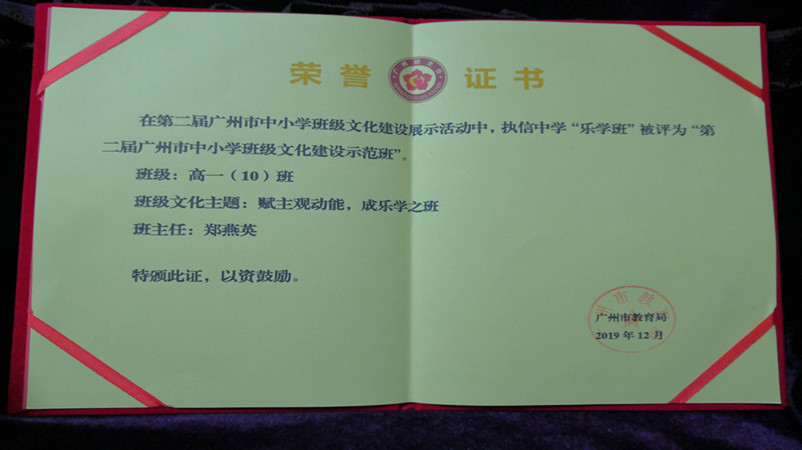 荣誉证书
在第二届广州市中小学班级文化建设展示活动中，执信中学“乐学班”被评为“第
二届广州市中小学班级文化建设示范班”。
班级：高一（10）班
班级文化主题：赋主观动能，成乐学之班
班主任：郑燕英
特颁此证，以资鼓励。
广州市教育局
2019年12月